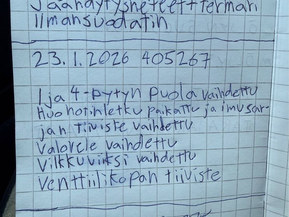 Jäähdytysneste ettterman
Ilmansuodatin
23.1.2026 405267
1 ja 4-pytyn puola vaihdettu
Huonot hletku paikattu ja imusar-
jan tiiviste vaihdettu
Valorele vaihdettu
Vilkkuviiksi vaihdettu
Venttiilikopan tiiviste